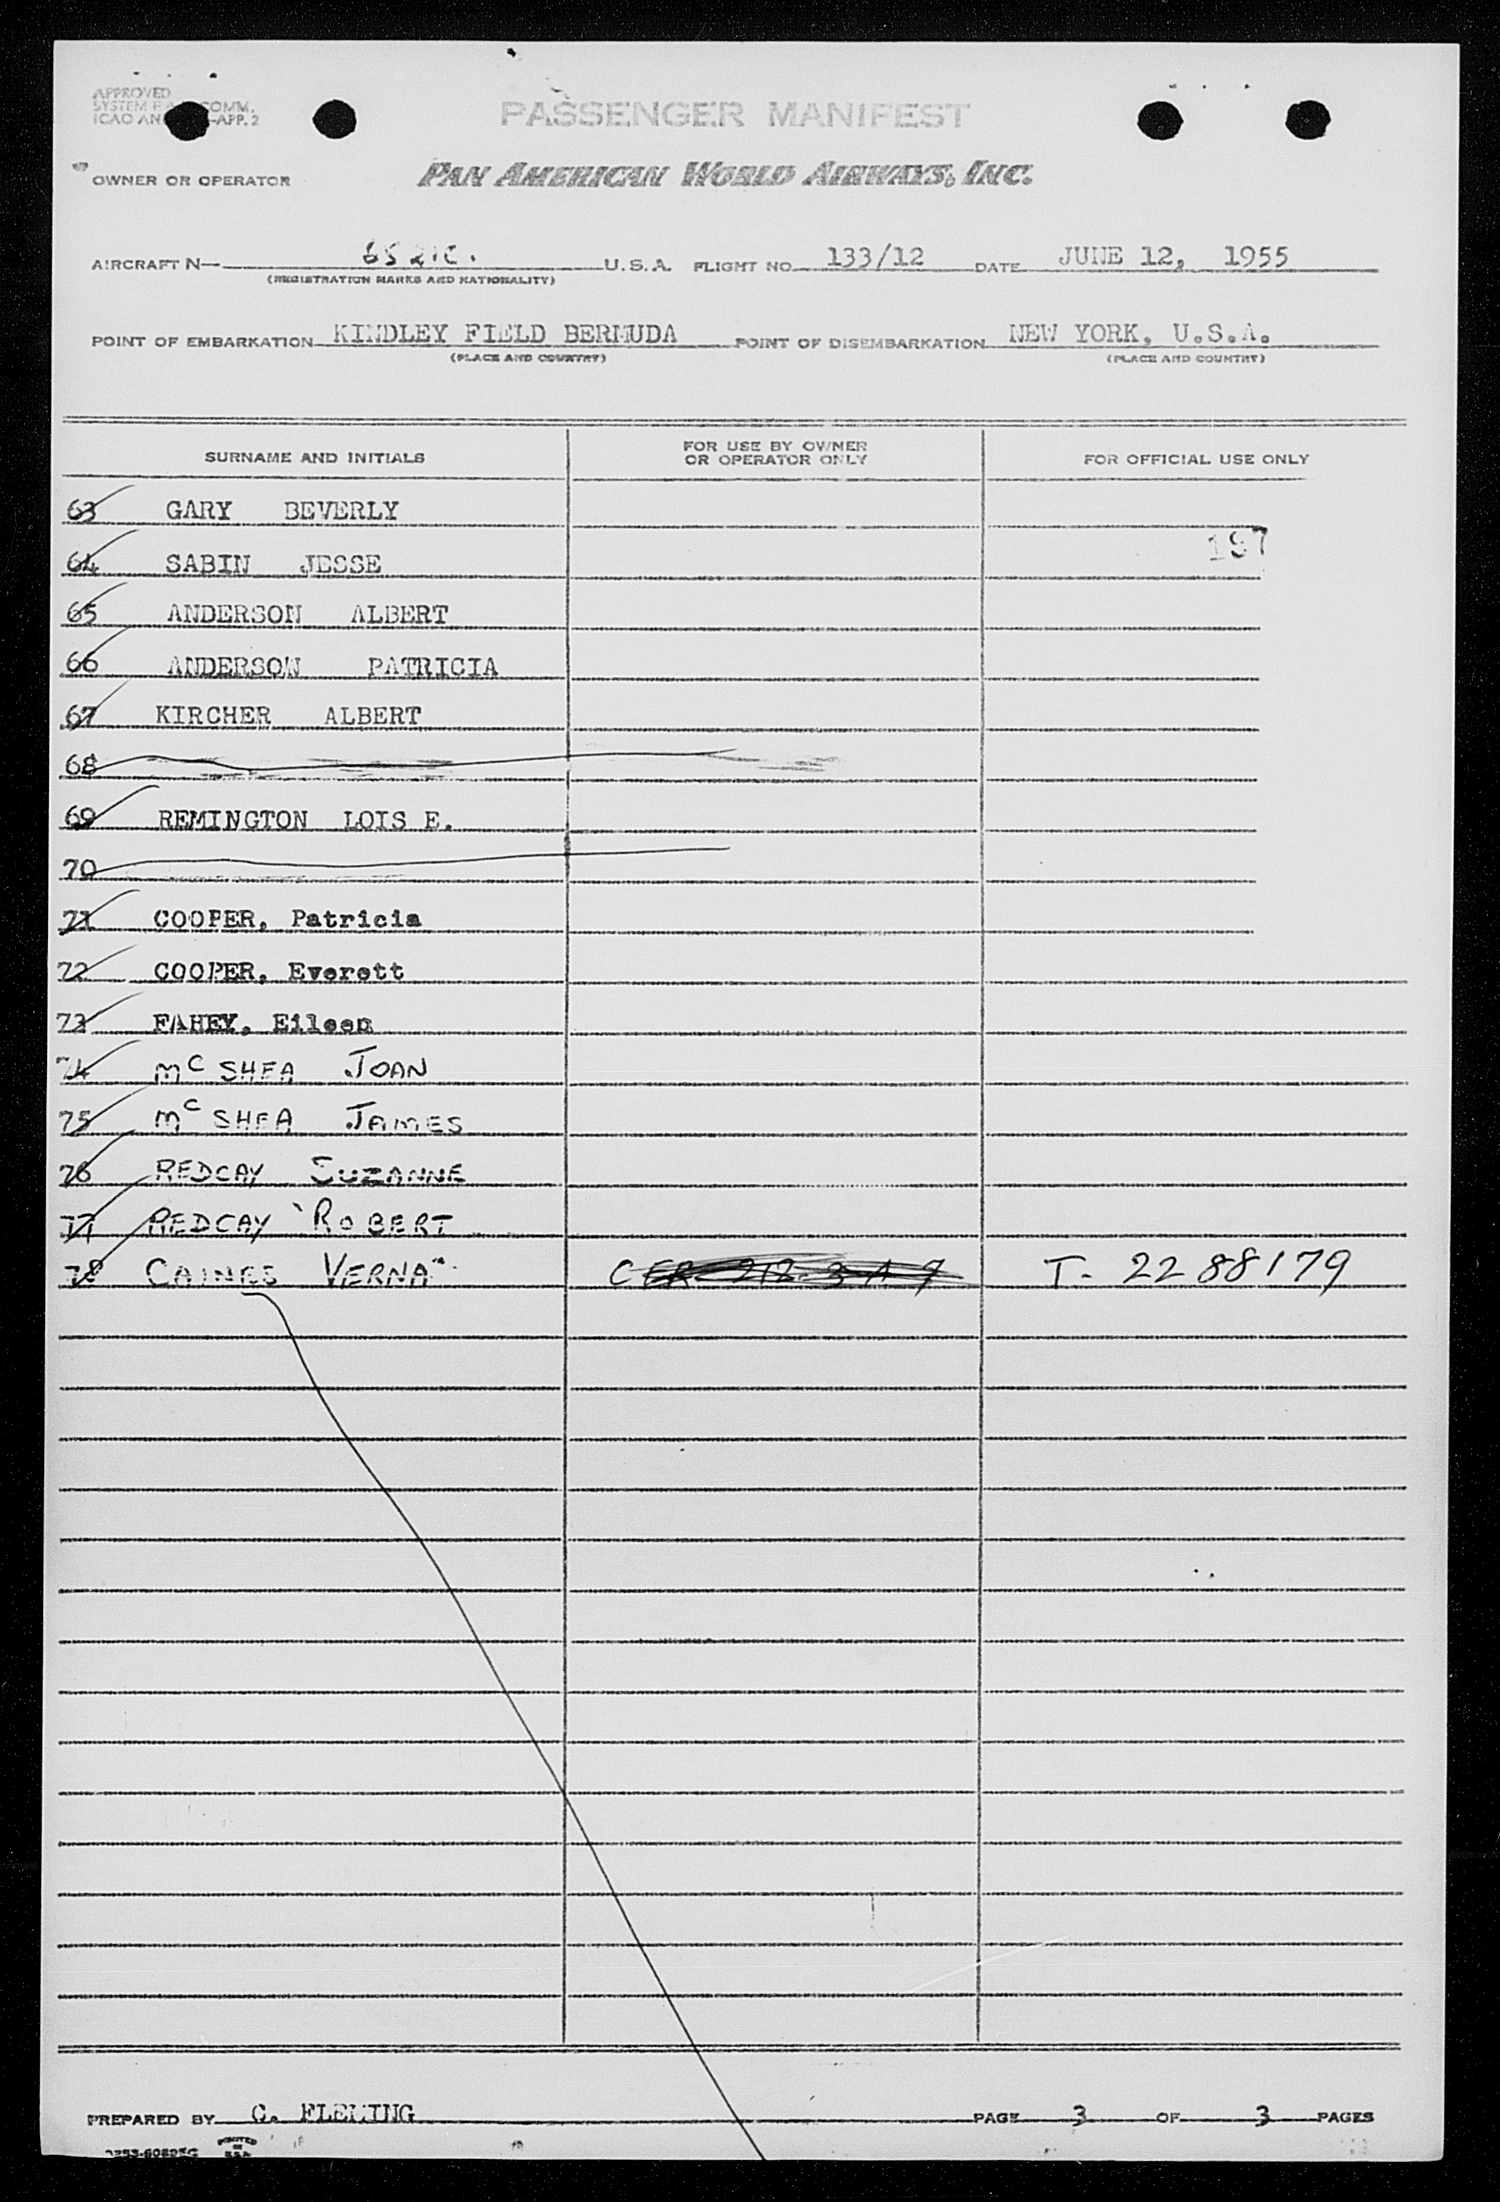 APPROVED
SYSTEM COMM.
ICAO AN -APP. 2
PASSENGER MANIFEST
OWNER OR OPERATOR PAN AMERICAN WORLD AIRWAYS, INC.
AIRCRAFT N— U.S.A. FLIGHT NO. 133/12 DATE JUNE 12, 1955
(REGISTRATION MARKS AND NATIONALITY)
POINT OF EMBARKATION KINDLEY FIELD BERMUDA POINT OF DISEMBARKATION NEW YORK, U.S.A.
(PLACE AND COUNTRY) (PLACE AND COUNTRY)
SURNAME AND INITIALS FOR USE BY OWNER OR OPERATOR ONLY FOR OFFICIAL USE ONLY
63 GARY BEVERLY
197
64 SABIN JESSE
65 ANDERSON ALBERT
66 ANDERSON PATRICIA
67 KIRCHER ALBERT
68
69 REMINGTON LOIS E.
70
71 COOPER, Patricia
72 COOPER, Everett
73 FAHEY, Eileen
74 Mc SHEA JOAN
75 Mc SHEA JAMES
76 REDCAY SUZANNE
77 REDCAY ROBERT
78 CAINES VERNA T- 2288179
PREPARED BY C. FLEMING PAGE 3 OF 3 PAGES
PRINTED
IN
U.S.A.